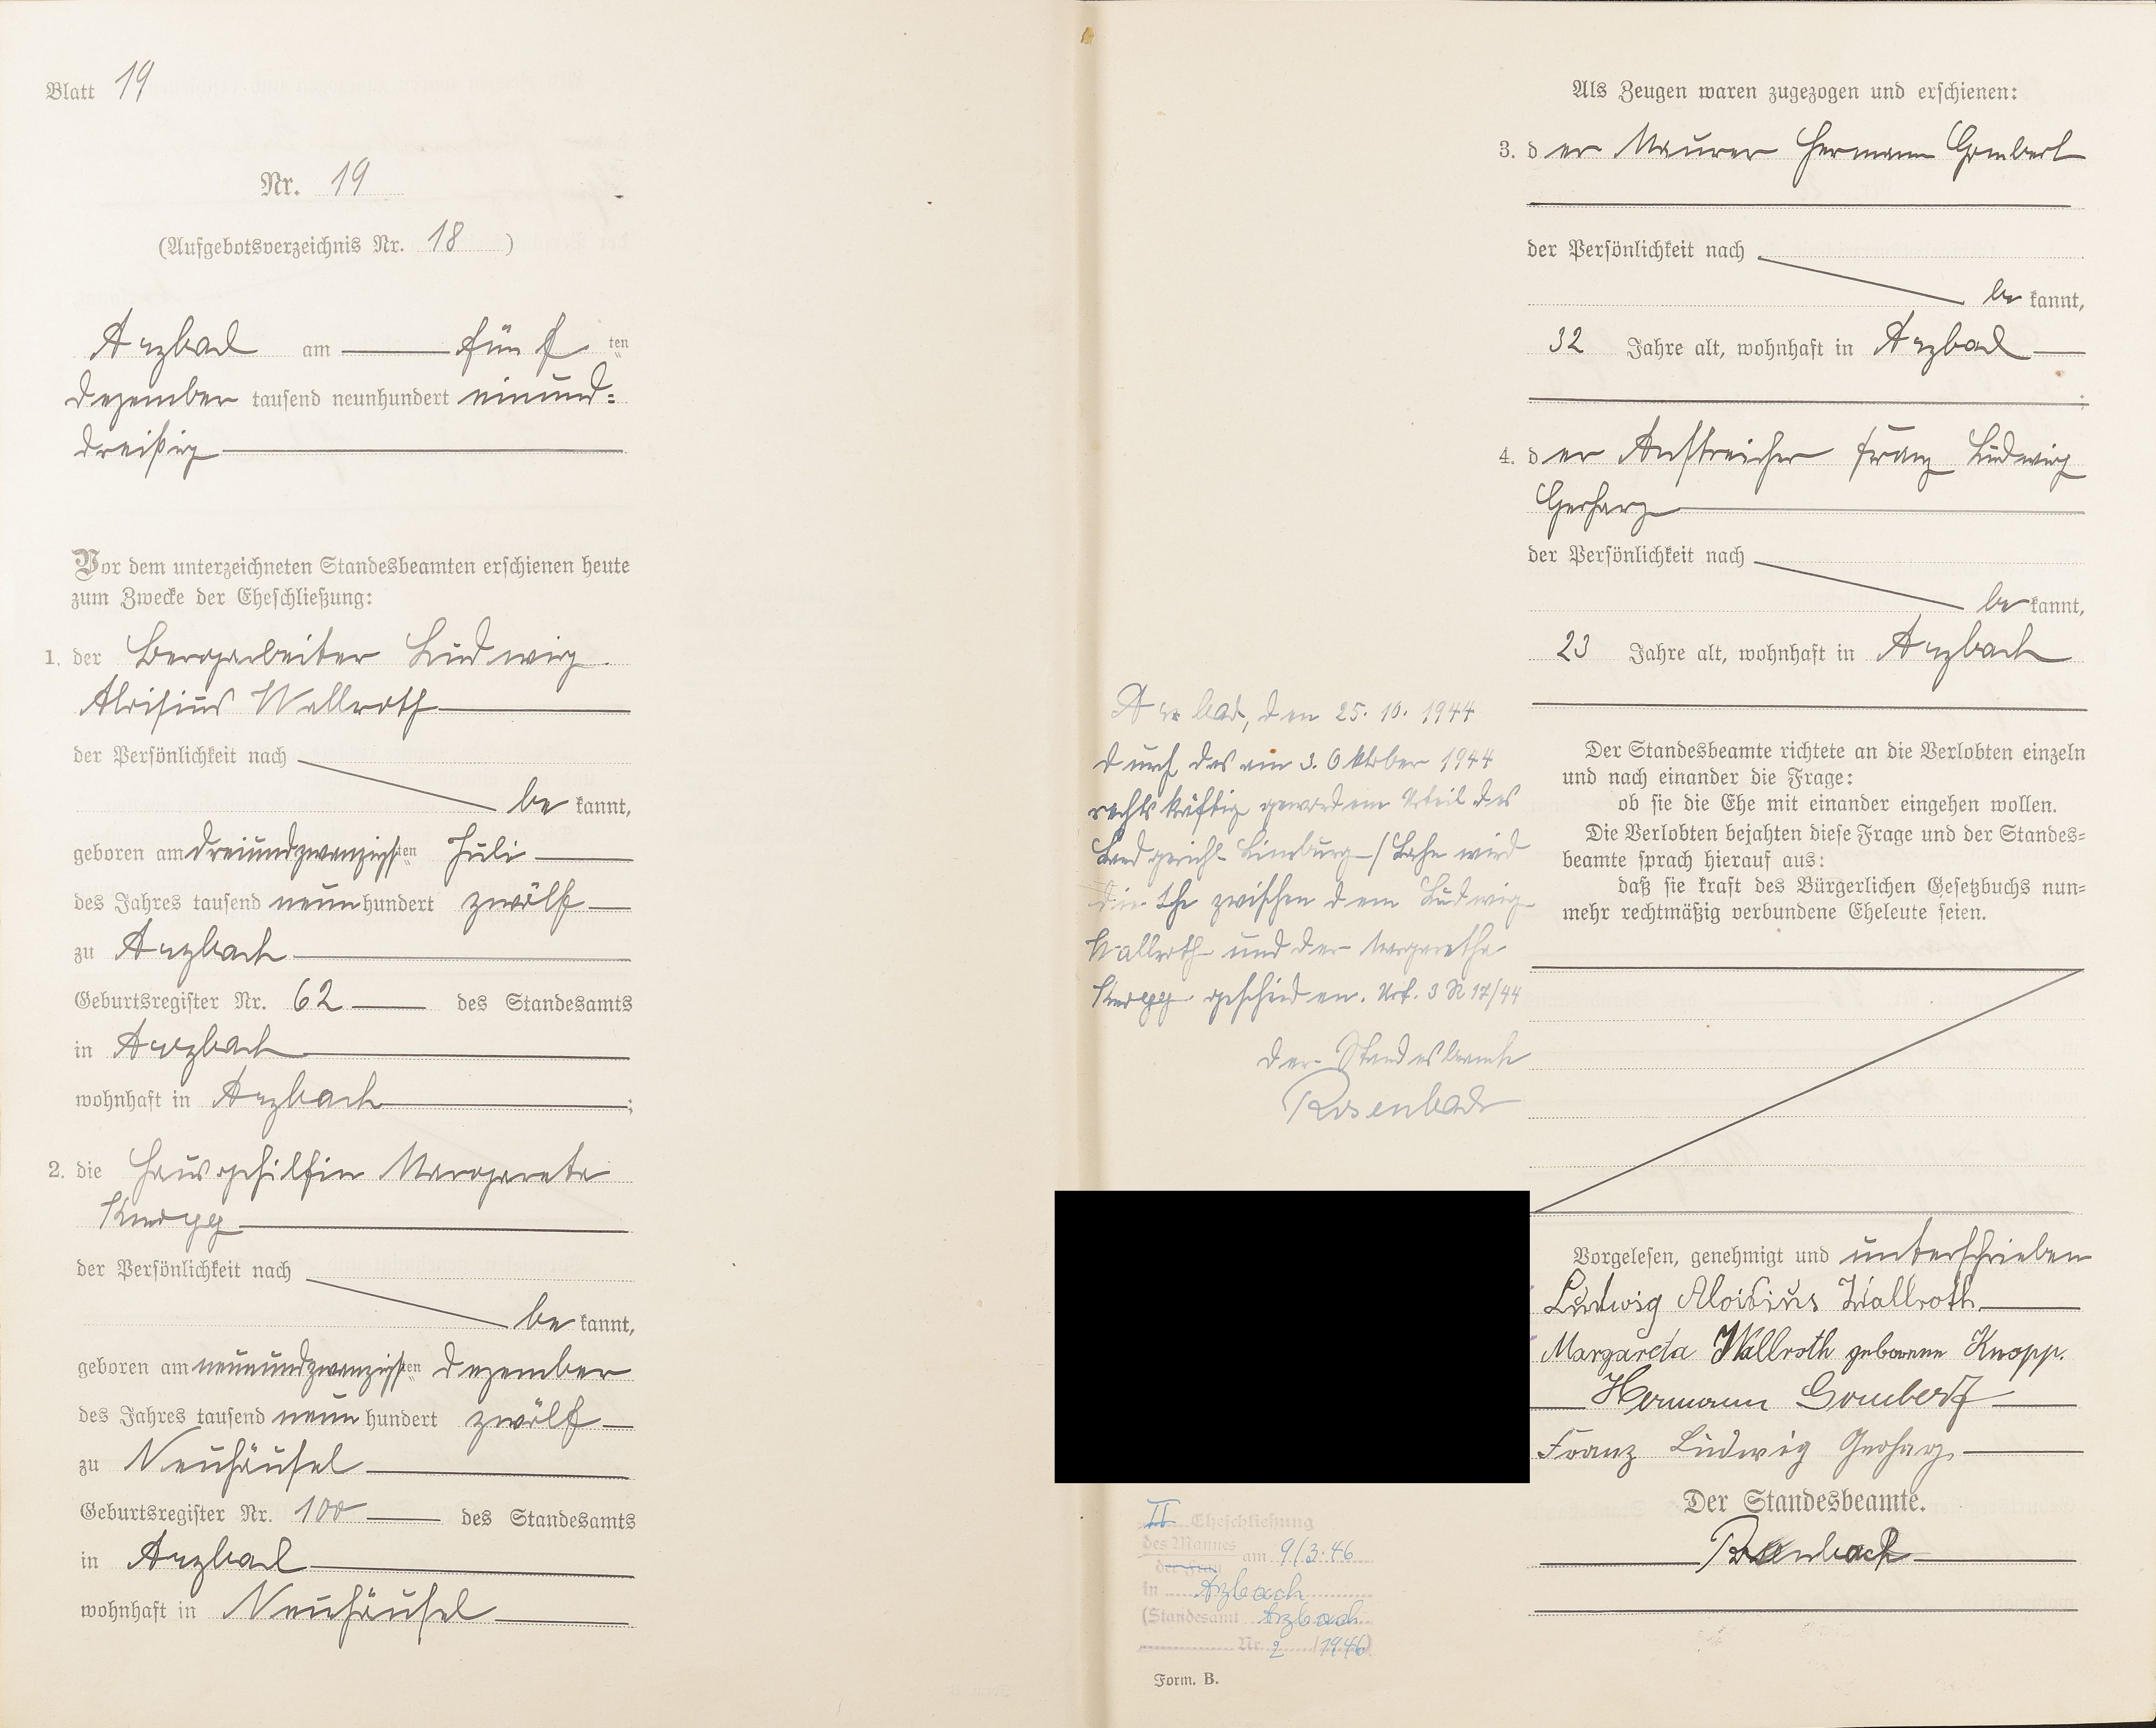 Blatt 19
Nr. 19
(Aufgebotsverzeichnis Nr. 18 )
Arzbach am fünf ten
Dezember tausend neunhundert einund-
dreißig
Vor dem unterzeichneten Standesbeamten erschienen heute
zum Zwecke der Eheschließung:
1. der Bergarbeiter Ludwig
Aloisius Wallroth
der Persönlichkeit nach
be kannt,
geboren am dreiundzwanzigsten Juli
des Jahres tausend neun hundert zwölf
zu Arzbach
Geburtsregister Nr. 62 des Standesamts
in Arzbach
wohnhaft in Arzbach ;
2. die Hausgehilfin Margareta
Knopp
der Persönlichkeit nach
be kannt,
geboren am neunundzwanzigsten Dezember
des Jahres tausend neun hundert zwölf
zu Neuhäusel
Geburtsregister Nr. 100 des Standesamts
in Arzbach
wohnhaft in Neuhäusel
Arzbach, den 25. 10. 1944
Durch das am 3. Oktober 1944
rechtskräftig gewordene Urteil des
Landgericht Limburg/Lahn wird
die Ehe zwischen dem Ludwig
Wallroth und der Margaretha
Knopp geschieden. Urt. 3 R 17/44
Der Standesbeamte
Rosenbach
II Eheschließung
des Mannes
der Frau am 9/3.46
in Arzbach
(Standesamt Arzbach
Nr. 2 /1946)
Form. B.
Als Zeugen waren zugezogen und erschienen:
3. d er Maurer Hermann Gombert
der Persönlichkeit nach
be kannt,
32 Jahre alt, wohnhaft in Arzbach
;
4. d er Anstreicher Franz Ludwig
Gerharz
der Persönlichkeit nach
be kannt,
23 Jahre alt, wohnhaft in Arzbach
Der Standesbeamte richtete an die Verlobten einzeln
und nach einander die Frage:
ob sie die Ehe mit einander eingehen wollen.
Die Verlobten bejahten diese Frage und der Standes-
beamte sprach hierauf aus:
daß sie kraft des Bürgerlichen Gesetzbuchs nun-
mehr rechtmäßig verbundene Eheleute seien.
Vorgelesen, genehmigt und unterschrieben
Ludwig Aloisius Wallroth
Margareta Wallroth geborene Knopp.
Hermann Gombert
Franz Ludwig Gerharz
Der Standesbeamte.
Rosenbach